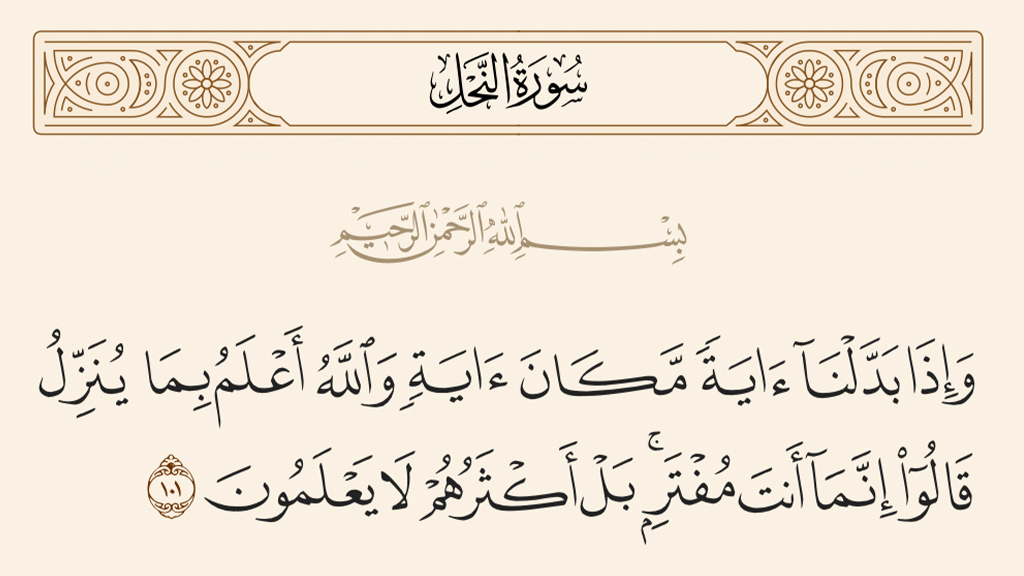 سُورَةُ النَّحْلِ
بِسْمِ ٱللَّهِ ٱلرَّحْمَٰنِ ٱلرَّحِيمِ
وَإِذَا بَدَّلْنَآ ءَايَةً مَّكَانَ ءَايَةٍ وَٱللَّهُ أَعْلَمُ بِمَا يُنَزِّلُ
قَالُوٓا۟ إِنَّمَآ أَنتَ مُفْتَرٍۭ ۚ بَلْ أَكْثَرُهُمْ لَا يَعْلَمُونَ ١٠١